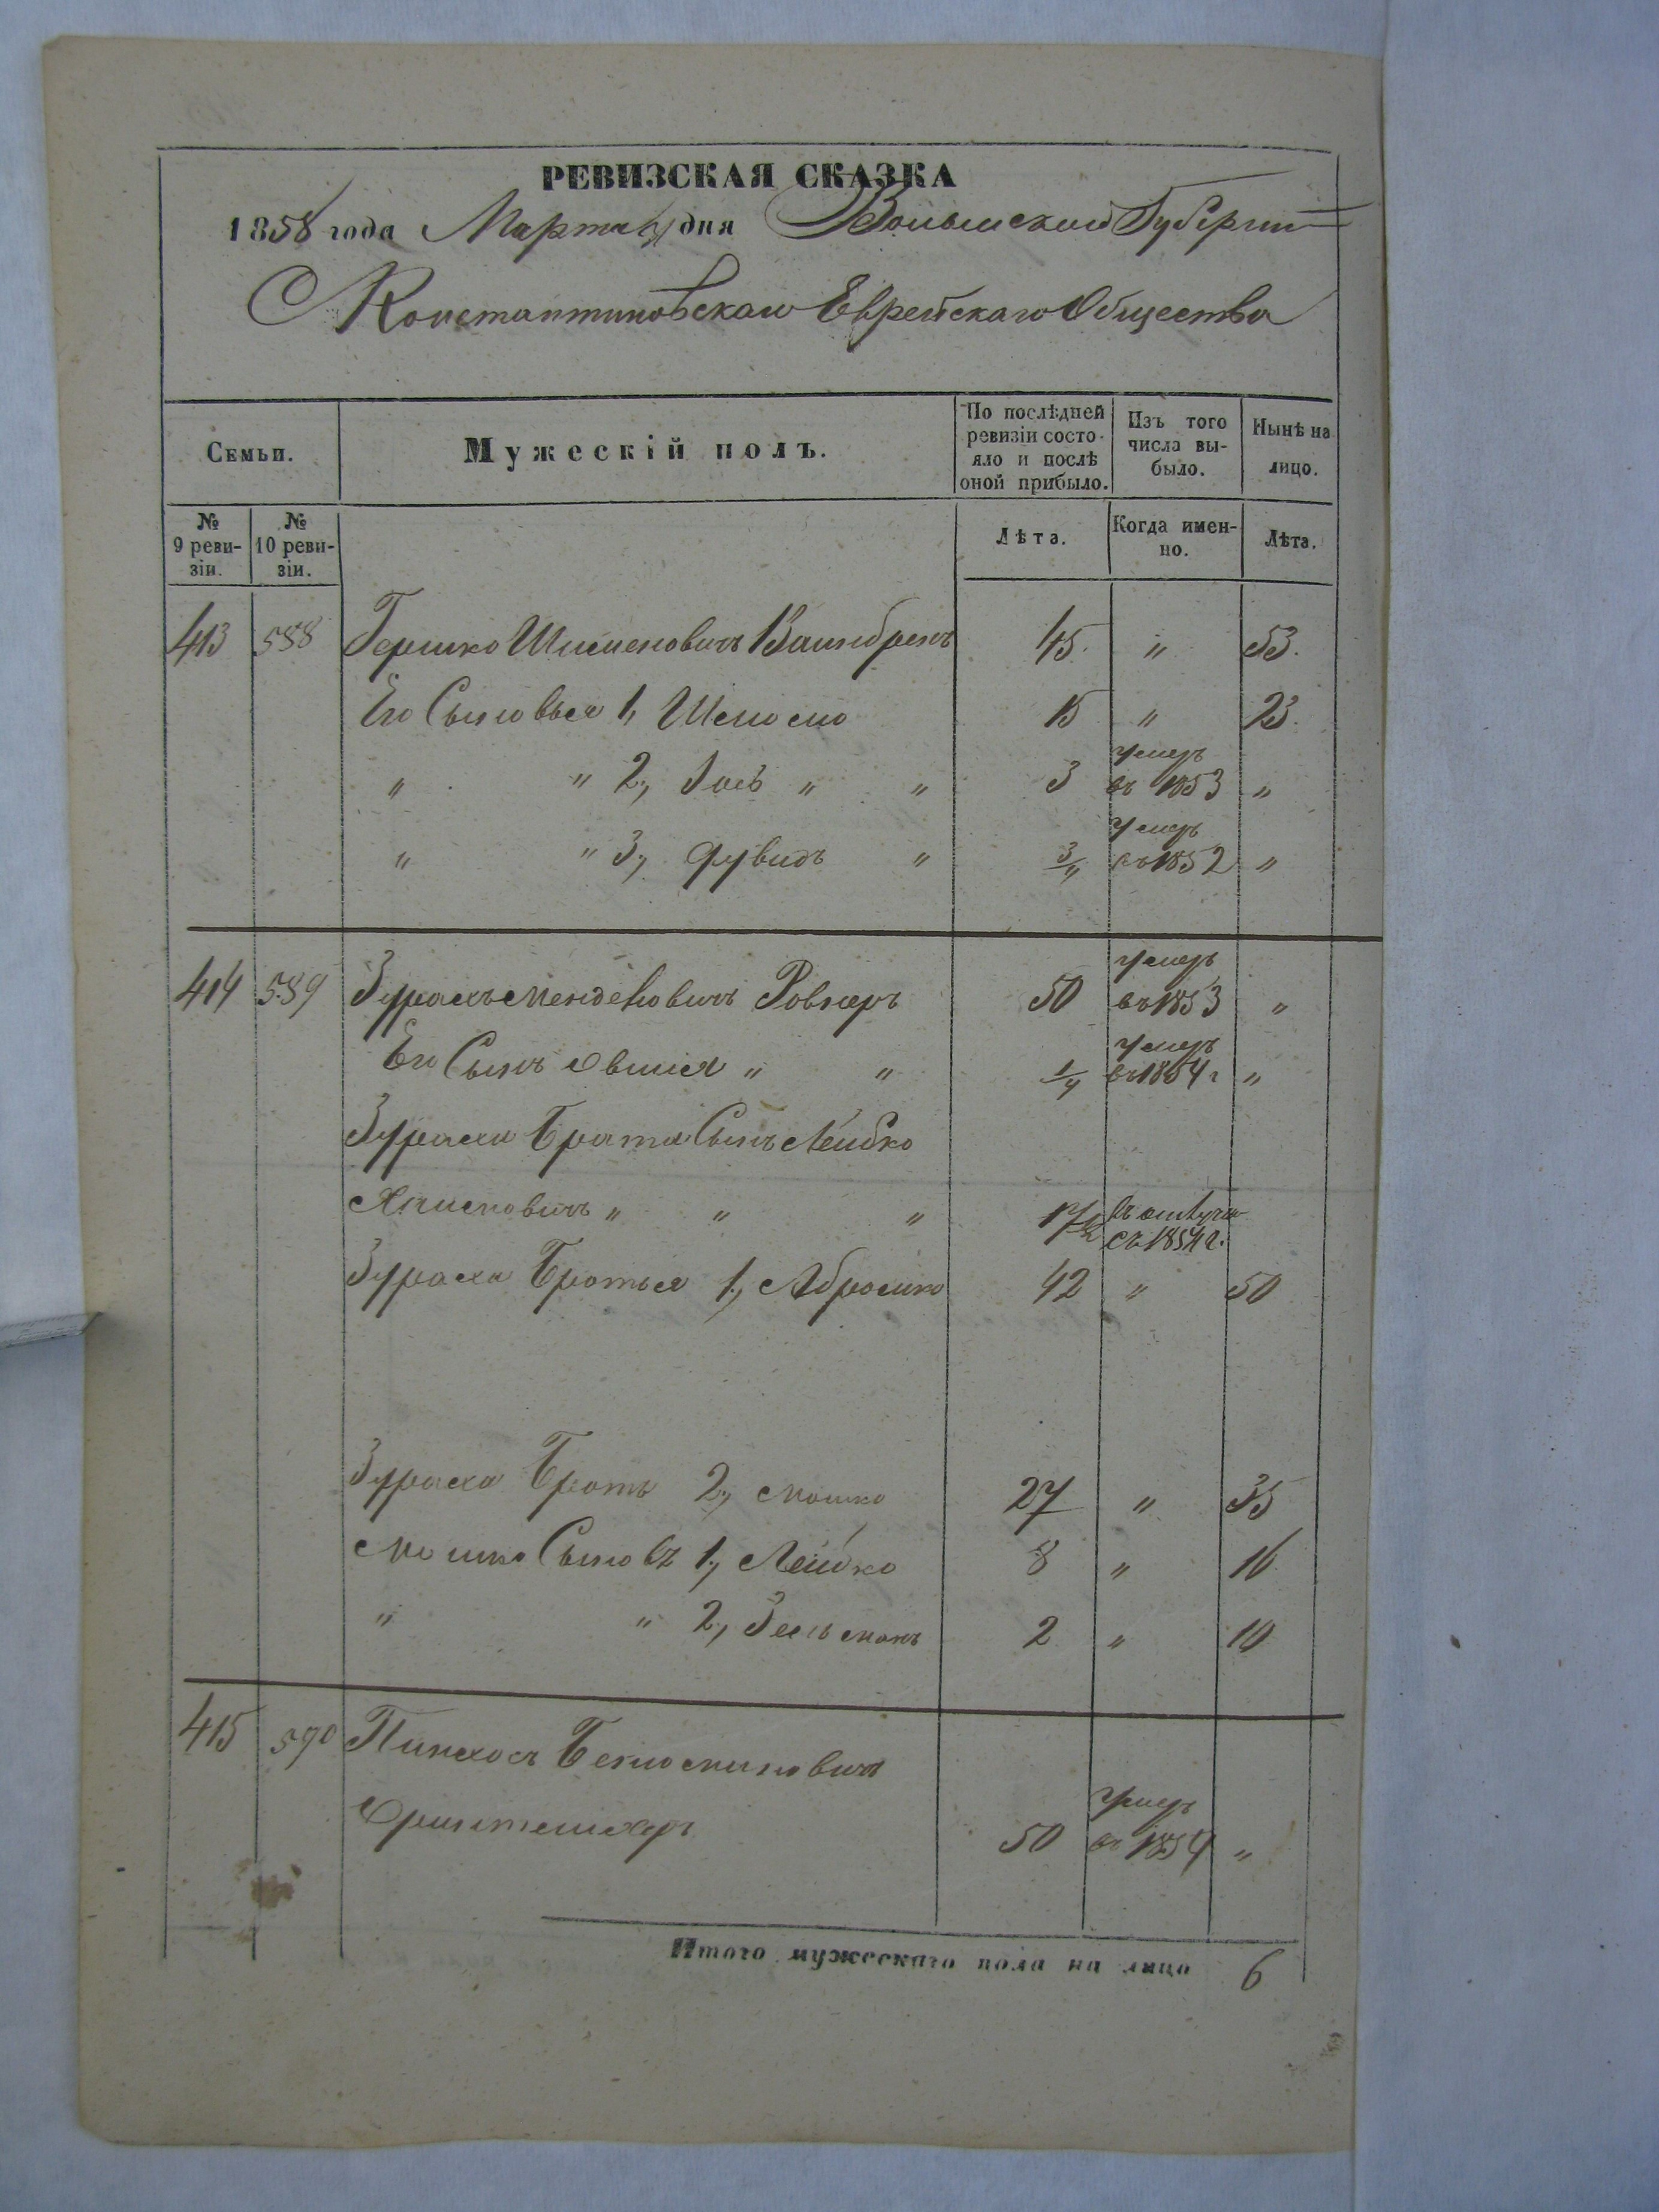 РЕВИЗСКАЯ СКАЗКА
1858 года Марта дня Волынской Губернии
Константиновскаго Еврейскаго Общества
Семьи.
Мужескій полъ.
По послѣдней ревизіи состо-
яло и послѣ
оной прибыло.
Изъ того
числа вы-
было.
Нынѣ на
лицо.
№
9 реви-
зіи.
№
10 реви-
зіи.
Лѣта.
Когда имен-
но.
Лѣта.
413 588 Гершко Шлиомовичъ 45 " 53.
Его Сыновья 1, 15 " 23.
" " 2, Іось " " 3 умеръ въ 1853 "
" " 3, Дувидъ " 3/4 умеръ въ 1852 "
414 589 Зурахъ Менделовичъ Ровнеръ 50 умеръ въ 1853 "
Его Сынъ Овшия " " 1/4 умеръ въ 1854 г "
Зураха Брата Сынъ Лейбко
" " " 17 1/2 въ отлучке съ 1854 г.
Зураха Братья 1, Абрамко 42 " 50
Зураха Братъ 2, Мошко 27 " 35
Мошко Сыновъ 1, Лейбко 8 " 16
" " 2, Зельманъ 2 " 10
415 590 Пинхосъ Бениоминовичъ
50 умеръ въ 1854 "
Итого мужескаго пола на лицо 6